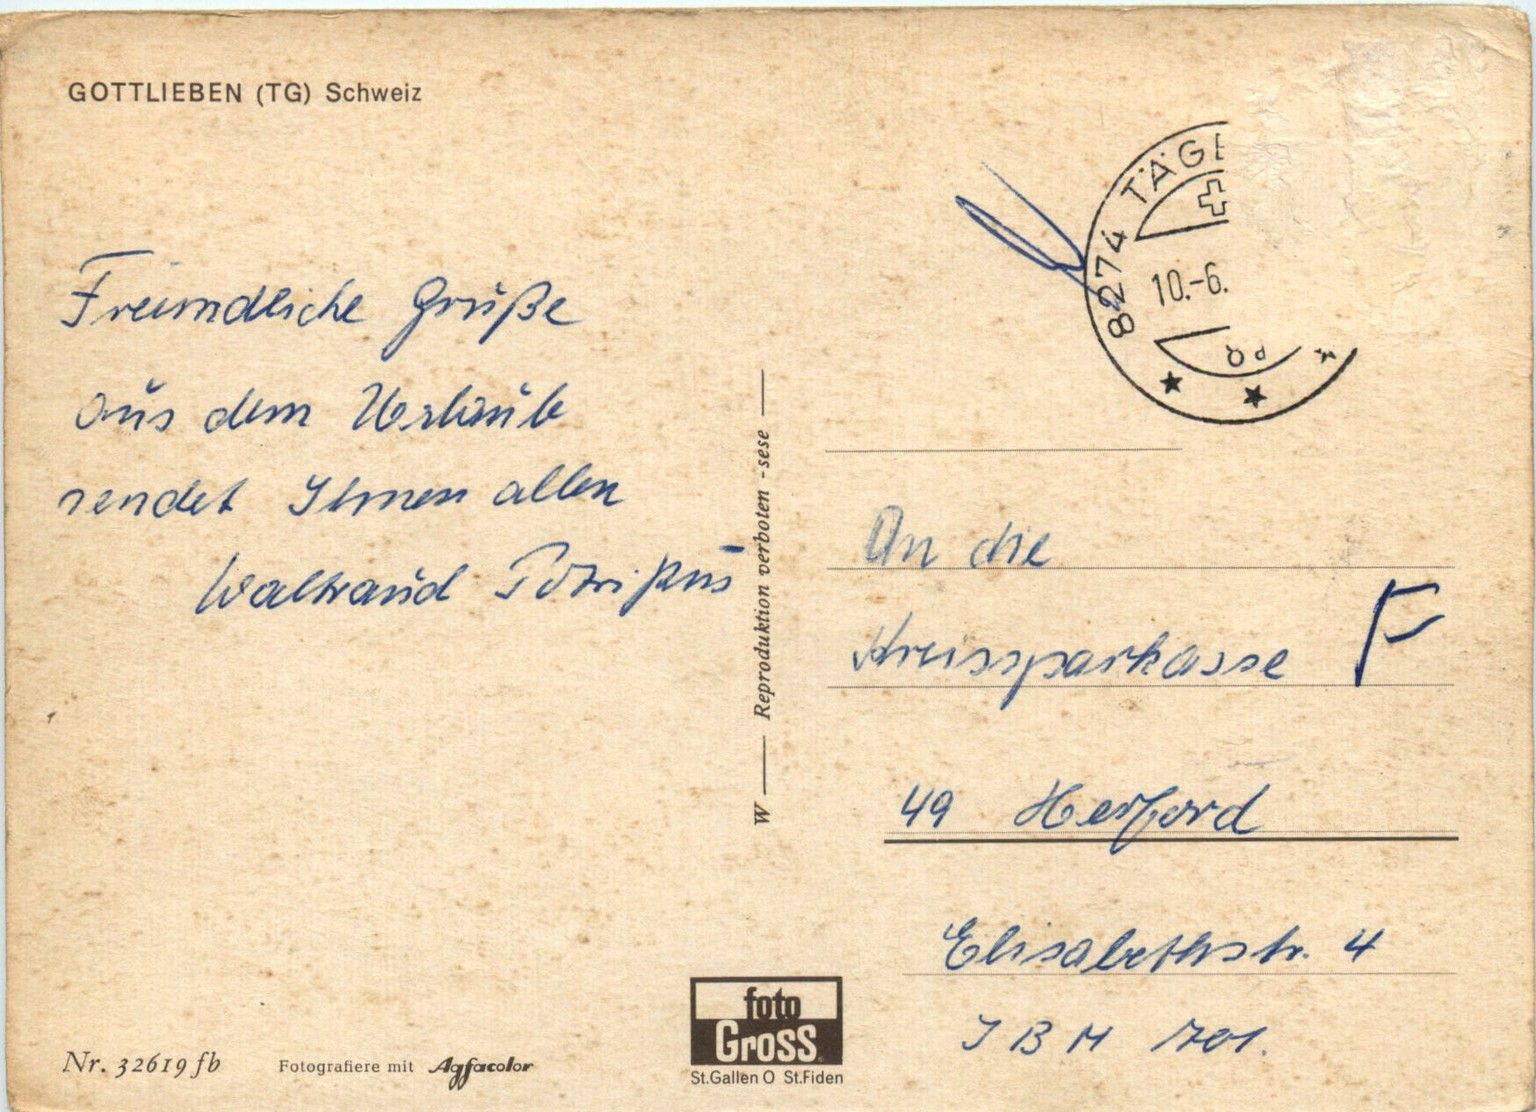 GOTTLIEBEN (TG) Schweiz
8274 TÄGE
10.-6.
Freundliche Grüße
aus dem Urlaub
sendet Ihnen allen
Waltraud
W — Reproduktion verboten - sese —
An die
Kreissparkasse F
49 Herford
Elisabethstr. 4
IBM
foto
Gross
St.Gallen O St.Fiden
Nr. 32619 fb
Fotografiere mit Agfacolor